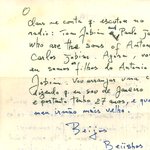 O
me conta q. escutou no
radio: Tom Jobim and Paulo Jo
who are the sons of Antonio
Carlos Jobim. Agora, vo
eu somos filhos do Antonio
Jobim. Vou arranjar uma c
dizendo q. eu sou de Janeiro
e portanto tenho 27 anos, e q
meu irmão mais velho.
Beijos
Beijinhos